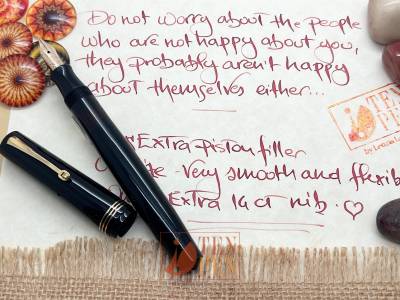 Do not worry about the people
who are not happy about you,
they probably aren't happy
about themselves either...
Extra piston filler
very smooth and flexib
Extra 14 ct nib. ♡
TEN
TEN